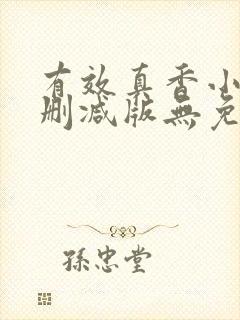 有效真香小
删减版無免
孫忠堂